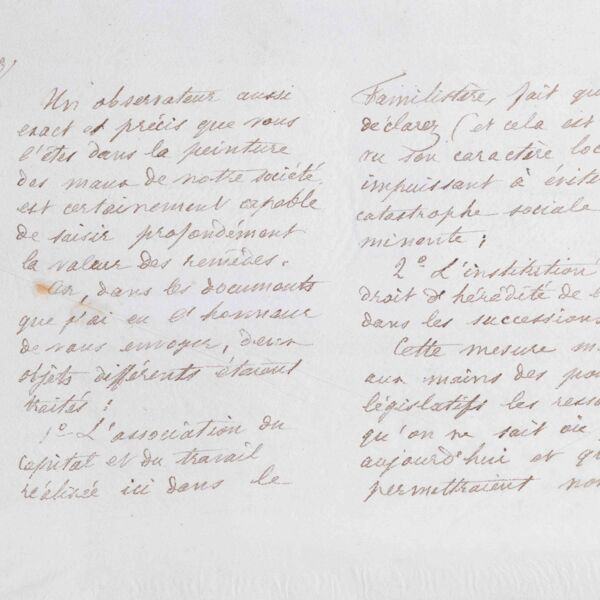 Un observateur aussi
exact et précis que vous
l'êtes dans la peinture
des maux de notre société
est certainement capable
de saisir profondément
la valeur des remèdes.
Or, dans les documents
que j'ai eu l'honneur
de vous envoyer, deux
objets différents étaient
traités :
1º L'association du
capital et du travail
réalisée ici dans le
Familistère, fait qu
déclarez (et cela est
vu son caractère loc
impuissant à évite
catastrophe sociale
minente ;
2º L'institution
droit d'hérédité de l
dans les succession
Cette mesure m
aux mains des pou
législatifs les resso
qu'on ne sait où
aujourd'hui et qu
permettraient no